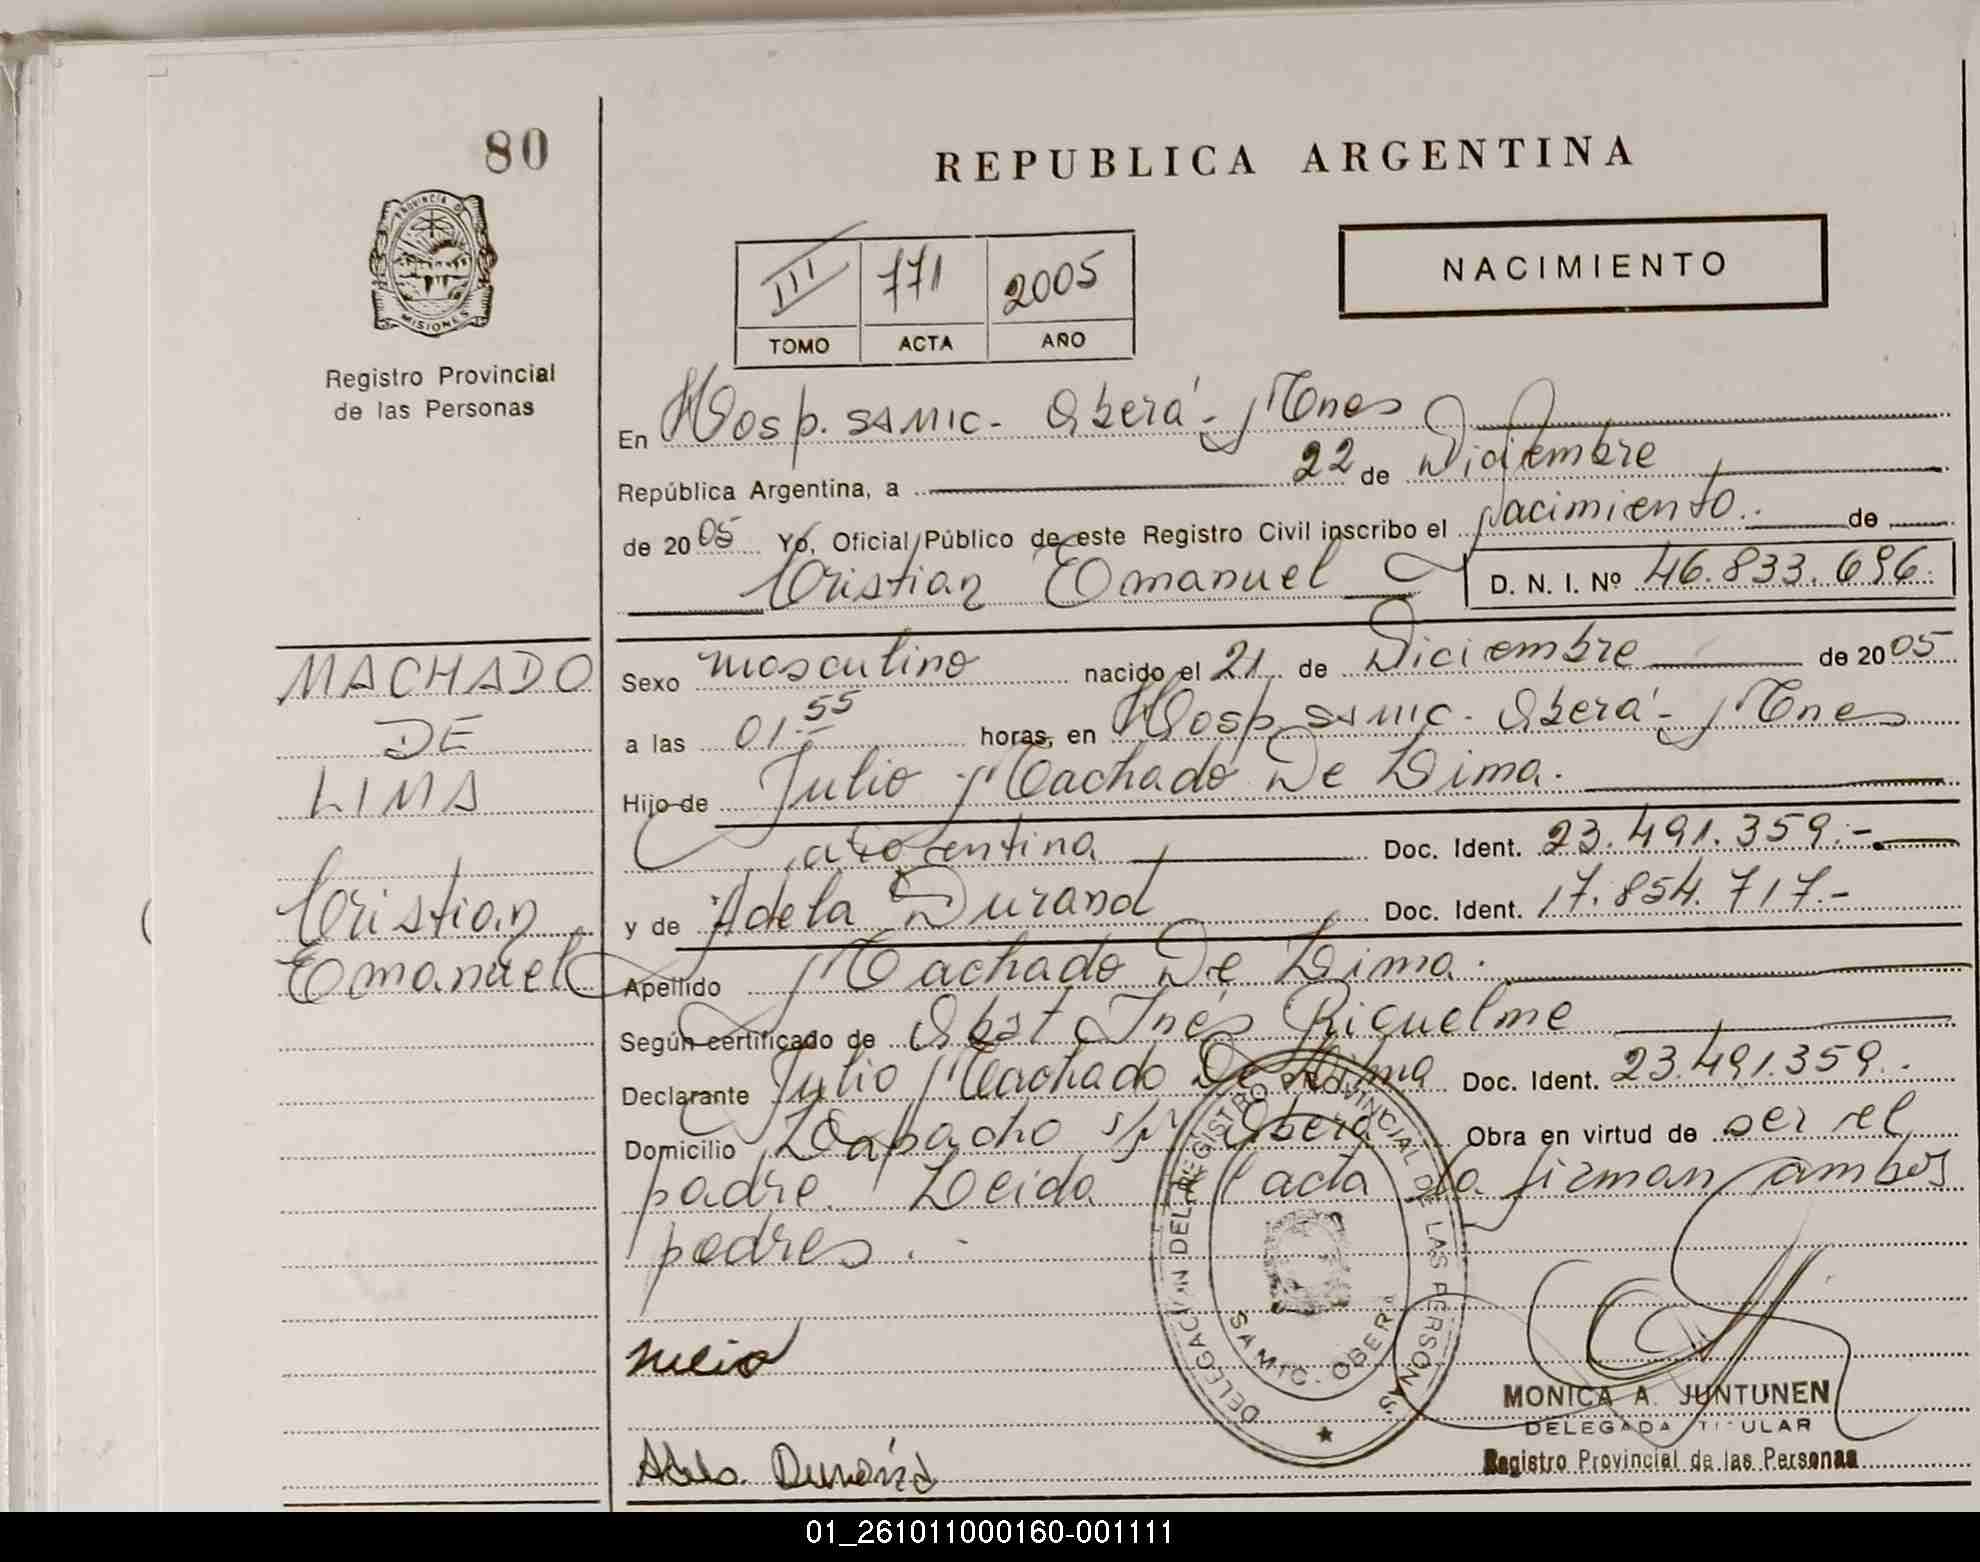 80
REPUBLICA ARGENTINA
PROVINCIA D
MISIONES
Registro Provincial
de las Personas
III 771 2005
TOMO ACTA AÑO
NACIMIENTO
En Hosp. SAMIC - Oberá - Mnes
República Argentina, a 22 de Diciembre
de 2005 Yo, Oficial Público de este Registro Civil inscribo el nacimiento. de
Cristian Emanuel D. N. I. Nº 46.833.696.
MACHADO
DE
LIMA
Cristian
Emanuel
Sexo masculino nacido el 21 de Diciembre de 2005
a las 01.55 horas, en Hosp. SAMIC - Oberá - Mnes
Hijo de Julio Machado De Lima.
argentina Doc. Ident. 23.491.359.-
y de Adela Durand Doc. Ident. 17.854.717.-
Apellido Machado De Lima.
Según certificado de Obst Inés Riquelme
Declarante Julio Machado De Lima Doc. Ident. 23.491.359.-
Domicilio Lapacho s/n Oberá Obra en virtud de ser el
padre. Leida el acta la firman ambos
padres.-
DELEGACION DEL REGISTRO PROVINCIAL DE LAS PERSONAS
SAMIC. OBERA
MONICA A. JUNTUNEN
DELEGADA TITULAR
Registro Provincial de las Personas
01_261011000160-001111